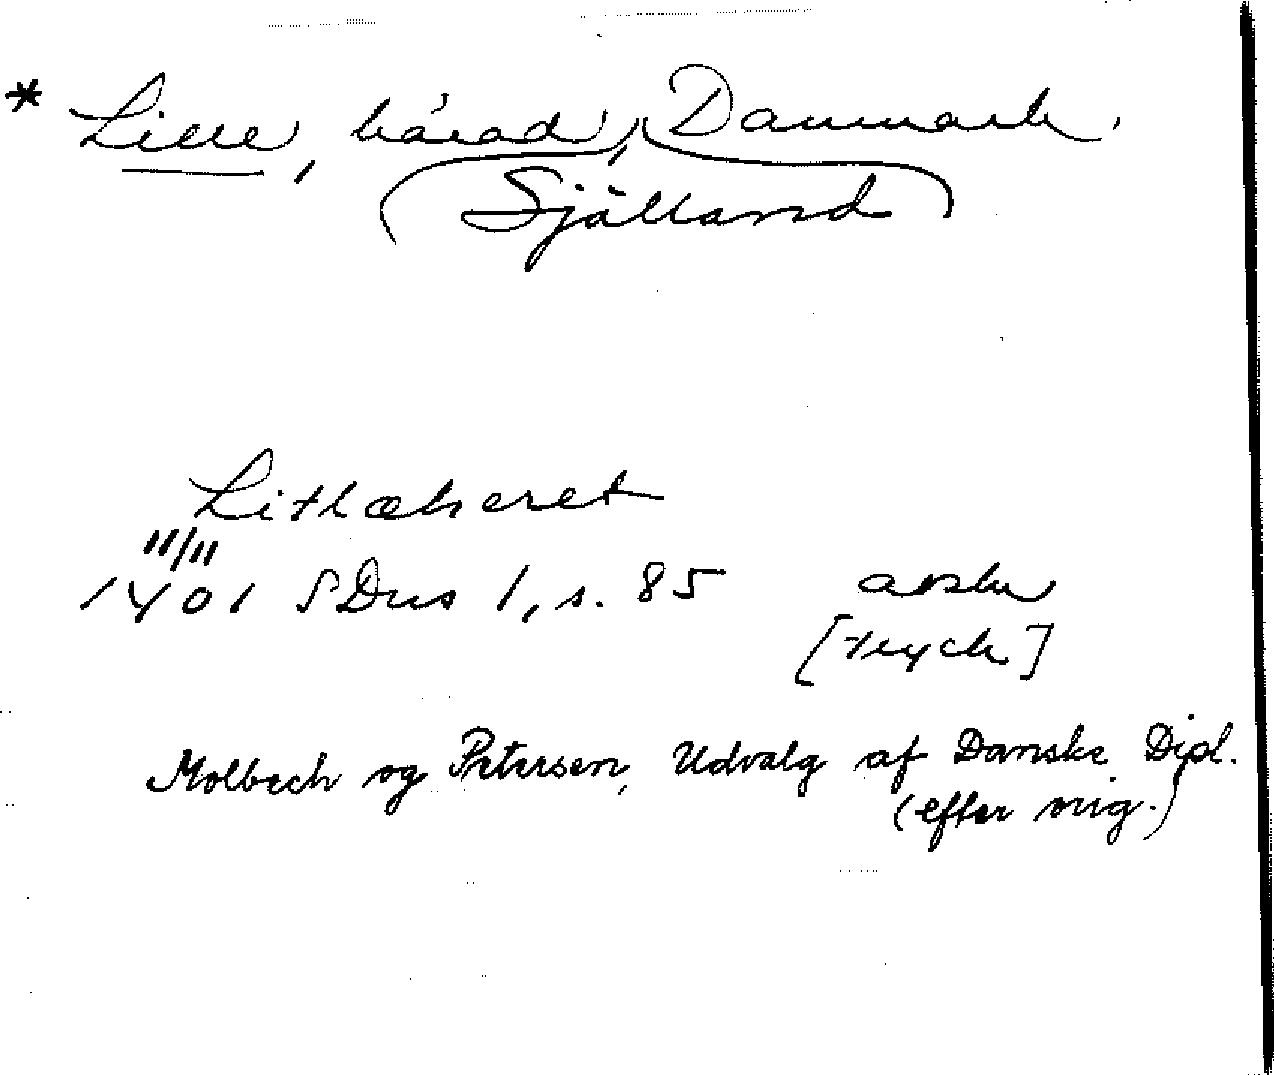 * Lille, härad, Danmark.
Själland
Litlæheret
11/11
1401 SDns 1, s. 85 avskr
[tryck]
Molbech og Petersen, Udvalg af Danske Dipl.
(efter orig.)